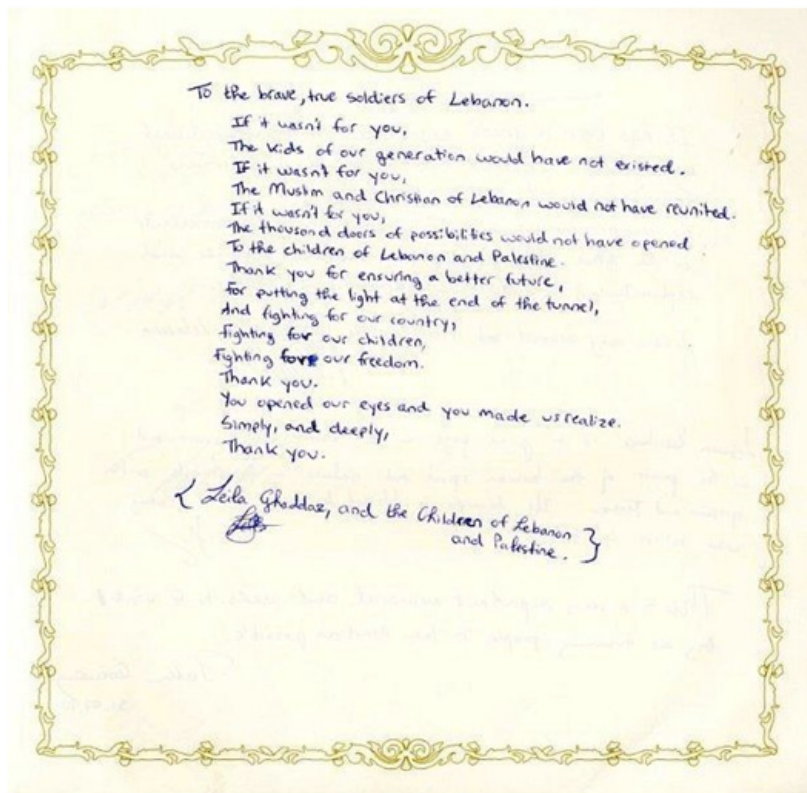 To the brave, true soldiers of Lebanon.
If it wasn't for you,
The kids of our generation would have not existed.
If it wasn't for you,
The Muslim and Christian of Lebanon would not have reunited.
If it wasn't for you,
The thousand doors of possibilities would not have opened
To the children of Lebanon and Palestine.
Thank you for ensuring a better future,
For putting the light at the end of the tunnel,
And fighting for our country,
Fighting for our children,
Fighting for our freedom.
Thank you.
You opened our eyes and you made us realize.
Simply, and deeply,
Thank you.
{ Leila Ghaddar, and the Children of Lebanon
and Palestine. }